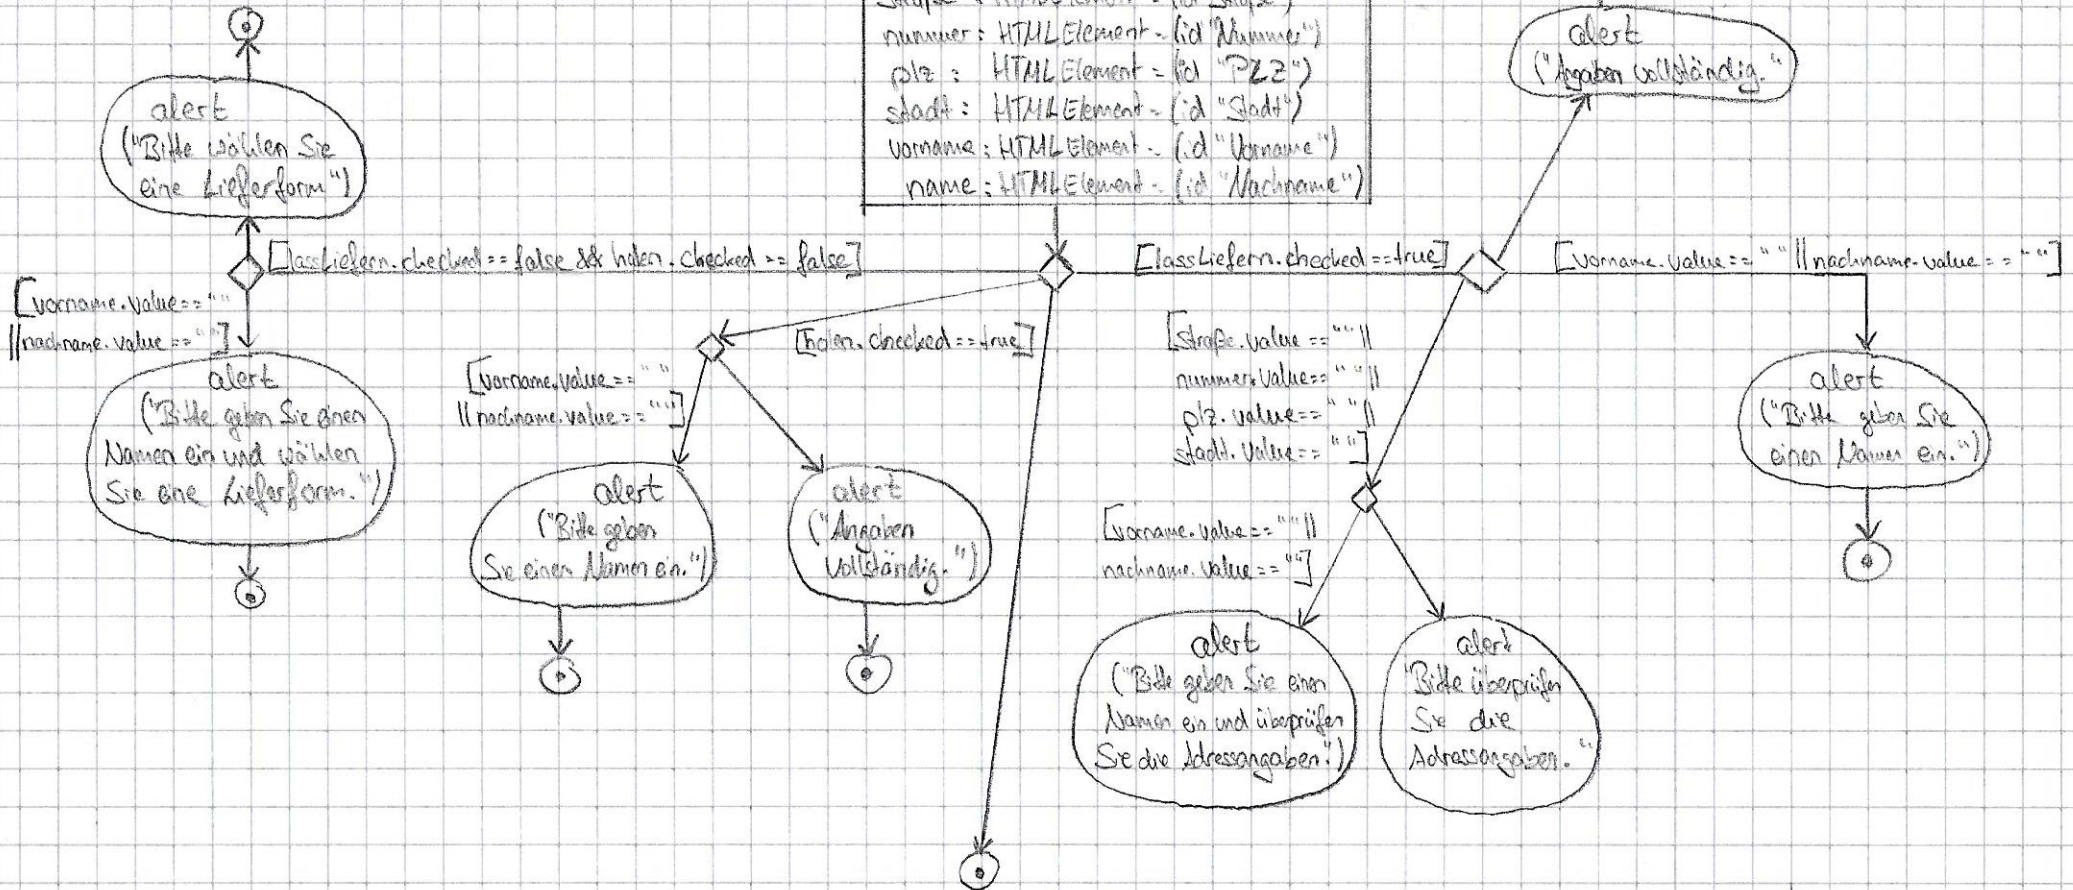 straße : HTMLElement = (id "Straße")
nummer : HTMLElement = (id "Nummer")
plz : HTMLElement = (id "PLZ")
stadt : HTMLElement = (id "Stadt")
vorname : HTMLElement = (id "Vorname")
name : HTMLElement = (id "Nachname")
alert
("Angaben vollständig."
alert
("Bitte wählen Sie
eine Lieferform")
[lassLiefern.checked == false && holen.checked == false]
[lassLiefern.checked == true]
[vorname.value == "" || nachname.value == ""]
[vorname.value == ""
|| nachname.value == ""]
alert
("Bitte geben Sie einen
Namen ein und wählen
Sie eine Lieferform.")
[holen.checked == true]
[vorname.value == ""
|| nachname.value == ""]
alert
("Bitte geben
Sie einen Namen ein.")
alert
("Angaben
vollständig.")
[straße.value == "" ||
nummer.value == "" ||
plz.value == "" ||
stadt.value == ""]
[vorname.value == "" ||
nachname.value == ""]
alert
("Bitte geben Sie einen
Namen ein und überprüfen
Sie die Adressangaben.")
alert
"Bitte überprüfen
Sie die
Adressangaben."
alert
("Bitte geben Sie
einen Namen ein.")